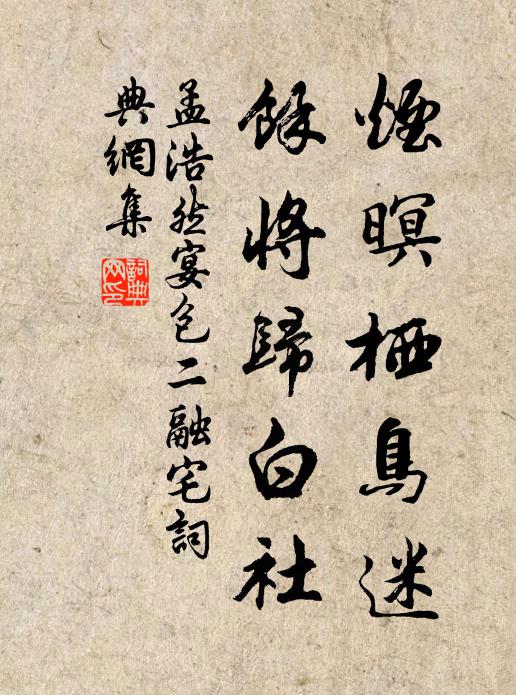 煙暝栖鳥迷
餘將歸白社
孟浩然宴包二融宅詞
典網集
詞典网印